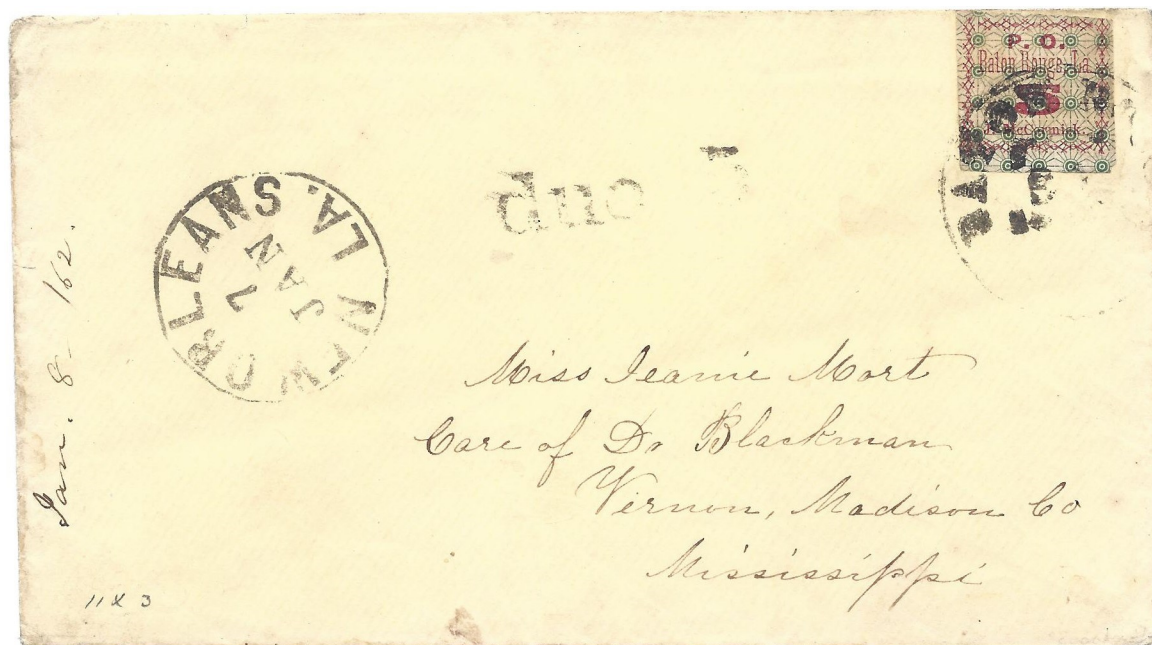 P. O.
Baton Rouge, La.
5
J. McCormick.
due 5
NEW ORLEANS. LA.
JAN
7
Jan. 8 - /62.
Miss Jeanie Mort
Care of Dr Blackman
Vernon, Madison Co
Mississippi
11 X 3